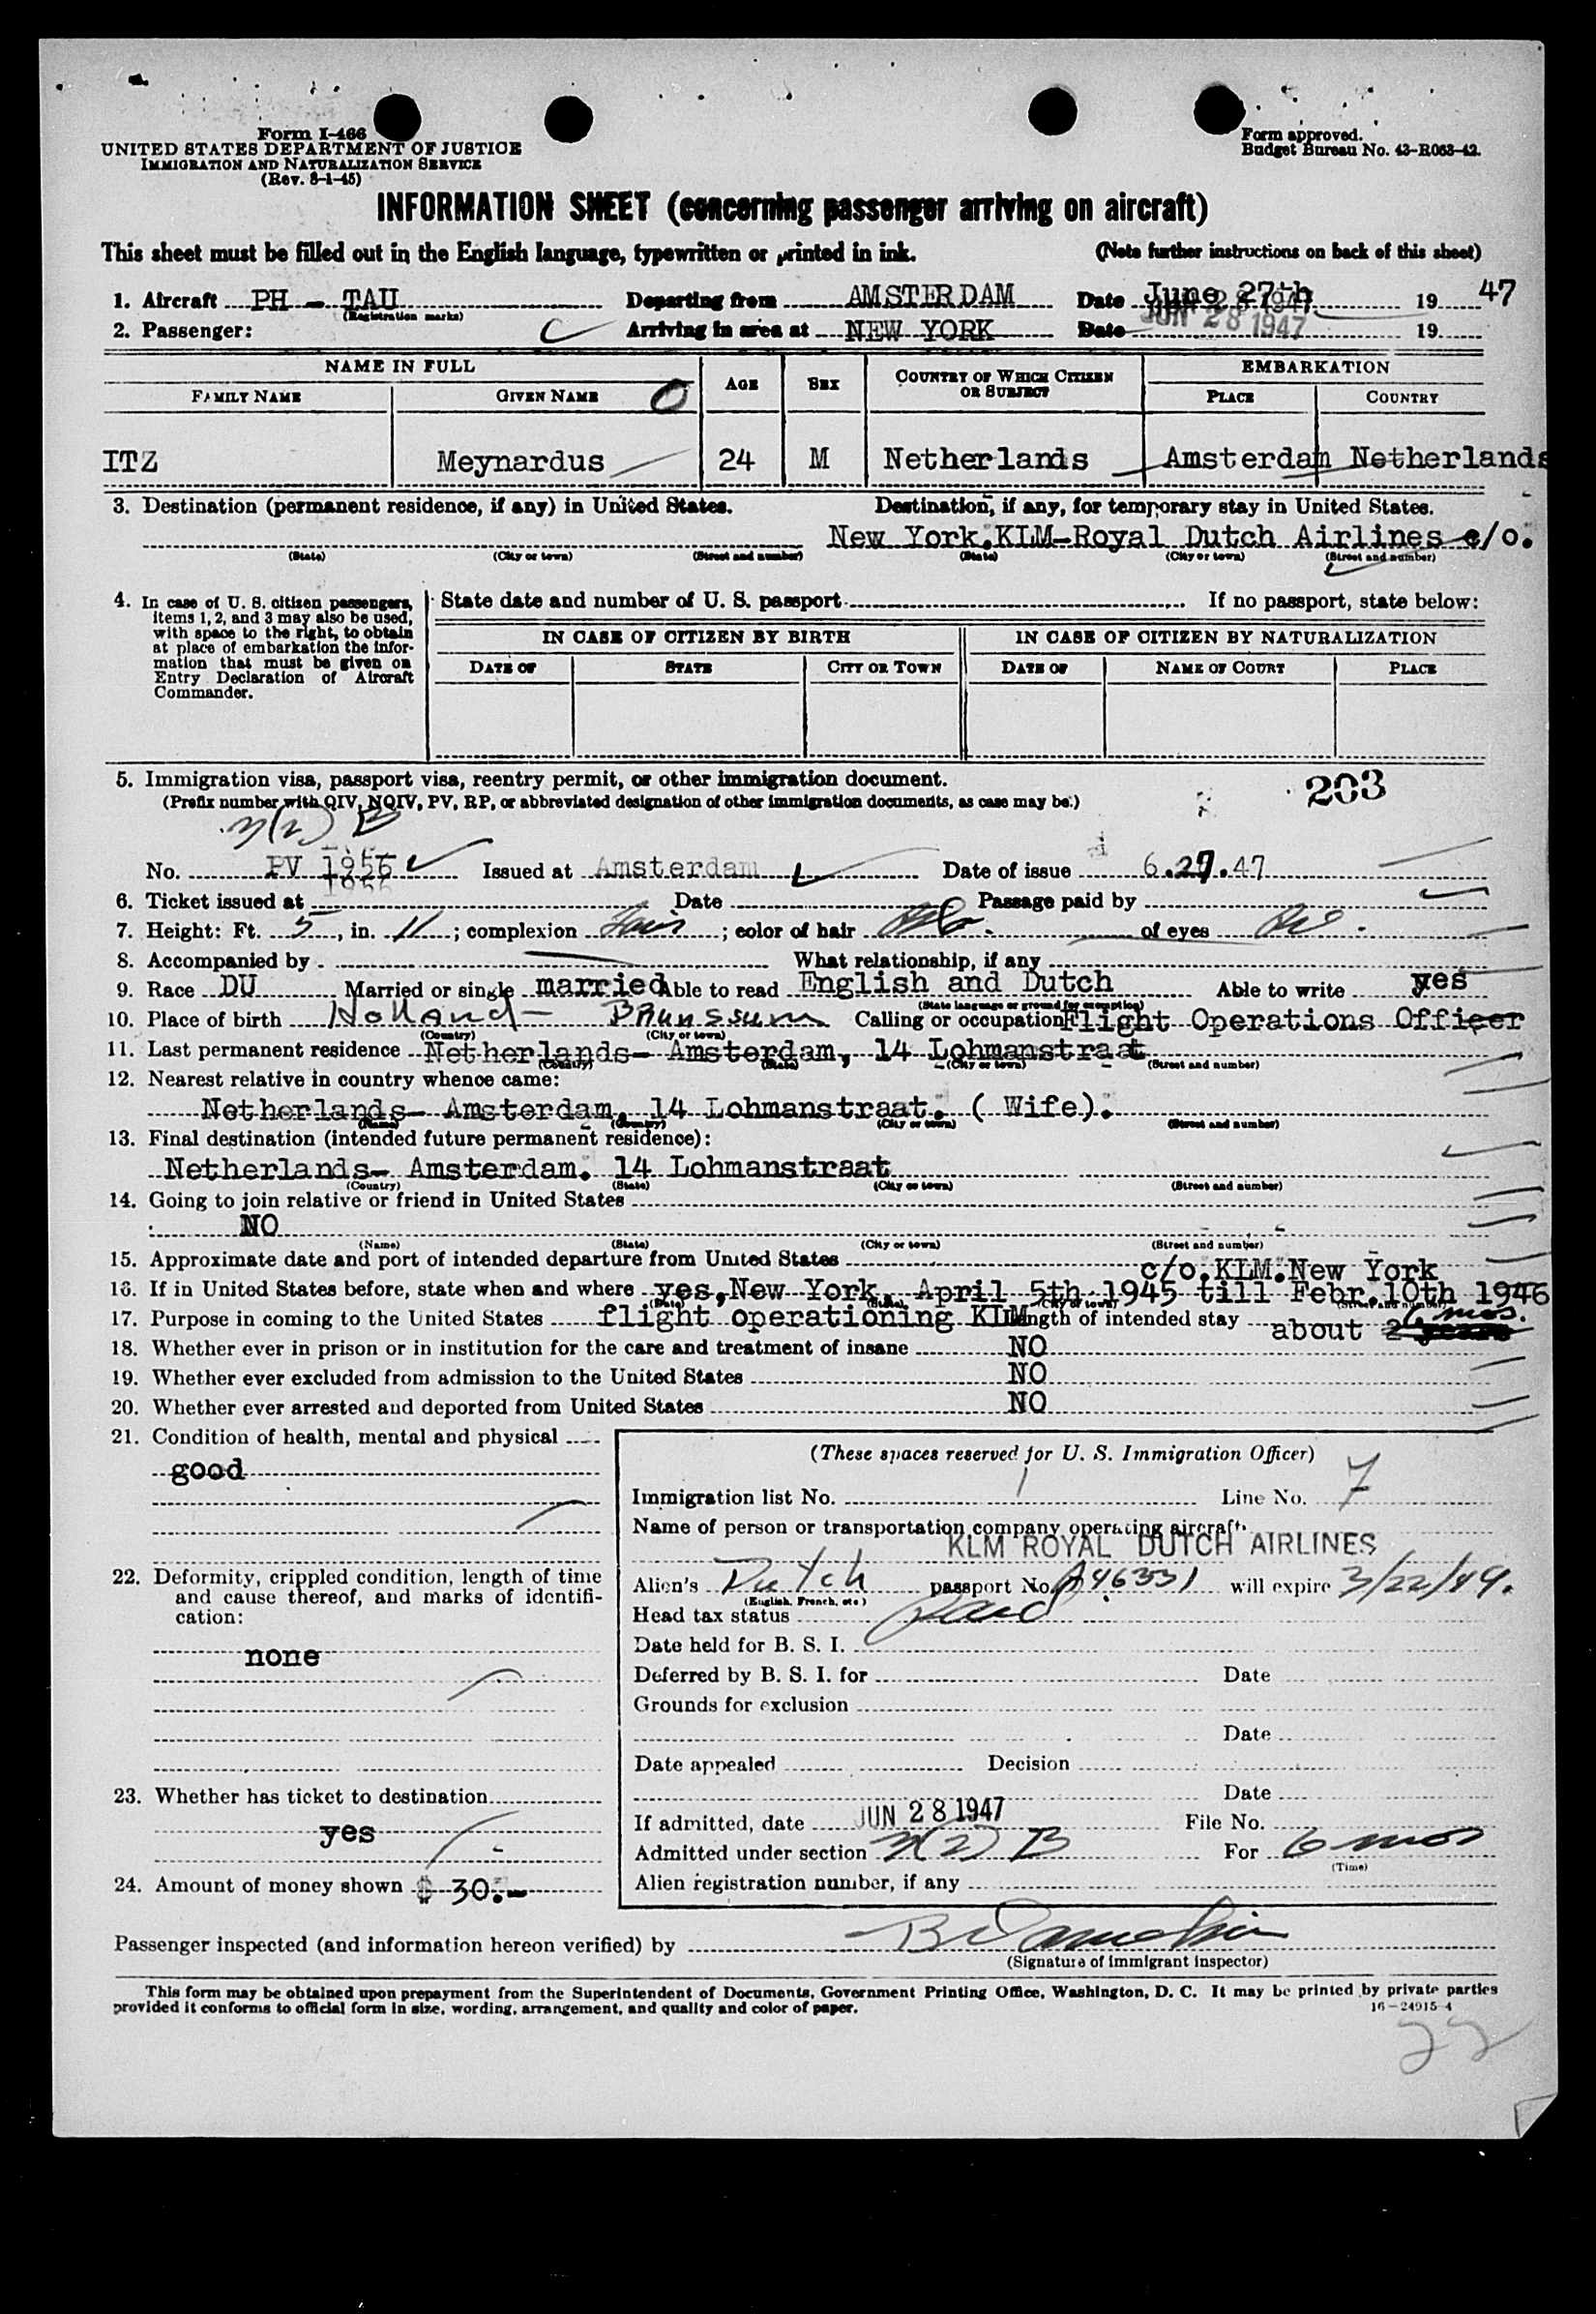 Form I-466
UNITED STATES DEPARTMENT OF JUSTICE
IMMIGRATION AND NATURALIZATION SERVICE
(Rev. 8-1-45)
Form approved.
Budget Bureau No. 43-R063-42.
INFORMATION SHEET (concerning passenger arriving on aircraft)
This sheet must be filled out in the English language, typewritten or printed in ink. (Note further instructions on back of this sheet)
1. Aircraft PH - TAU Departing from AMSTERDAM Date June 27th 19 47
(Registration marks)
2. Passenger: C Arriving in area at NEW YORK Date JUN 28 1947 19
NAME IN FULL AGE SEX COUNTRY OF WHICH CITIZEN OR SUBJECT EMBARKATION
FAMILY NAME GIVEN NAME O PLACE COUNTRY
ITZ Meynardus 24 M Netherlands Amsterdam Netherlands
3. Destination (permanent residence, if any) in United States. Destination, if any, for temporary stay in United States.
New York.KLM-Royal Dutch Airlines c/o.
(State) (City or town) (Street and number) (State) (City or town) (Street and number)
4. In case of U. S. citizen passengers, items 1, 2, and 3 may also be used, with space to the right, to obtain at place of embarkation the information that must be given on Entry Declaration of Aircraft Commander.
State date and number of U. S. passport If no passport, state below:
IN CASE OF CITIZEN BY BIRTH IN CASE OF CITIZEN BY NATURALIZATION
DATE OF STATE CITY OR TOWN DATE OF NAME OF COURT PLACE
5. Immigration visa, passport visa, reentry permit, or other immigration document. 203
(Prefix number with QIV, NQIV, PV, RP, or abbreviated designation of other immigration documents, as case may be.)
3(2) B
No. PV 1956 Issued at Amsterdam Date of issue 6.27.47
6. Ticket issued at Date Passage paid by
7. Height: Ft. 5, in. 11; complexion Fair; color of hair of eyes
8. Accompanied by What relationship, if any
9. Race DU Married or single married Able to read English and Dutch Able to write yes
(State language or ground for exemption)
10. Place of birth Holland - Brunssum Calling or occupation Flight Operations Officer
(Country) (City or town)
11. Last permanent residence Netherlands- Amsterdam, 14 Lohmanstraat
(Country) (State) (City or town) (Street and number)
12. Nearest relative in country whence came:
Netherlands- Amsterdam. 14 Lohmanstraat. ( Wife).
(Name) (Country) (City or town) (Street and number)
13. Final destination (intended future permanent residence):
Netherlands- Amsterdam. 14 Lohmanstraat
(Country) (State) (City or town) (Street and number)
14. Going to join relative or friend in United States
NO
(Name) (State) (City or town) (Street and number)
15. Approximate date and port of intended departure from United States
c/o.KLM.New York
16. If in United States before, state when and where yes,New York, April 5th 1945 till Febr.10th 1946
(Date) (State) (City or town) (Street and number)
17. Purpose in coming to the United States flight operationing KLM Length of intended stay about 6 mos.
18. Whether ever in prison or in institution for the care and treatment of insane NO
19. Whether ever excluded from admission to the United States NO
20. Whether ever arrested and deported from United States NO
21. Condition of health, mental and physical
good
(These spaces reserved for U. S. Immigration Officer)
Immigration list No. 1 Line No. 7
Name of person or transportation company operating aircraft
KLM ROYAL DUTCH AIRLINES
22. Deformity, crippled condition, length of time and cause thereof, and marks of identification:
none
Alien's Dutch passport No. A46331 will expire 3/22/49.
(English, French, etc.)
Head tax status Paid
Date held for B. S. I.
Deferred by B. S. I. for Date
Grounds for exclusion
Date
Date appealed Decision
23. Whether has ticket to destination
yes
Date
If admitted, date JUN 28 1947 File No.
Admitted under section 3(2) B For 6 mos
(Time)
24. Amount of money shown $ 30.-
Alien registration number, if any
Passenger inspected (and information hereon verified) by
(Signature of immigrant inspector)
This form may be obtained upon prepayment from the Superintendent of Documents, Government Printing Office, Washington, D. C. It may be printed by private parties
provided it conforms to official form in size, wording, arrangement, and quality and color of paper.
16-24915-4
22